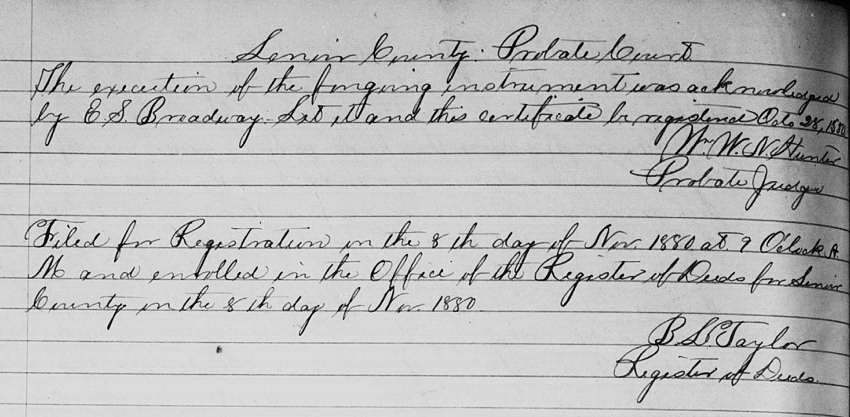 Lenoir County. Probate Court
The execution of the forgoing instrument was acknowledged
by E. S. Broadway. Let it and this certificate be registered Octo 28, 1880
Wm W. N. Hunter
Probate Judge
Filed for Registration in the 8th day of Nov 1880 at 9 O'clock A
M and enrolled in the Office of the Register of Deeds for Lenoir
County in the 8th day of Nov 1880.
Taylor
Register of Deeds.